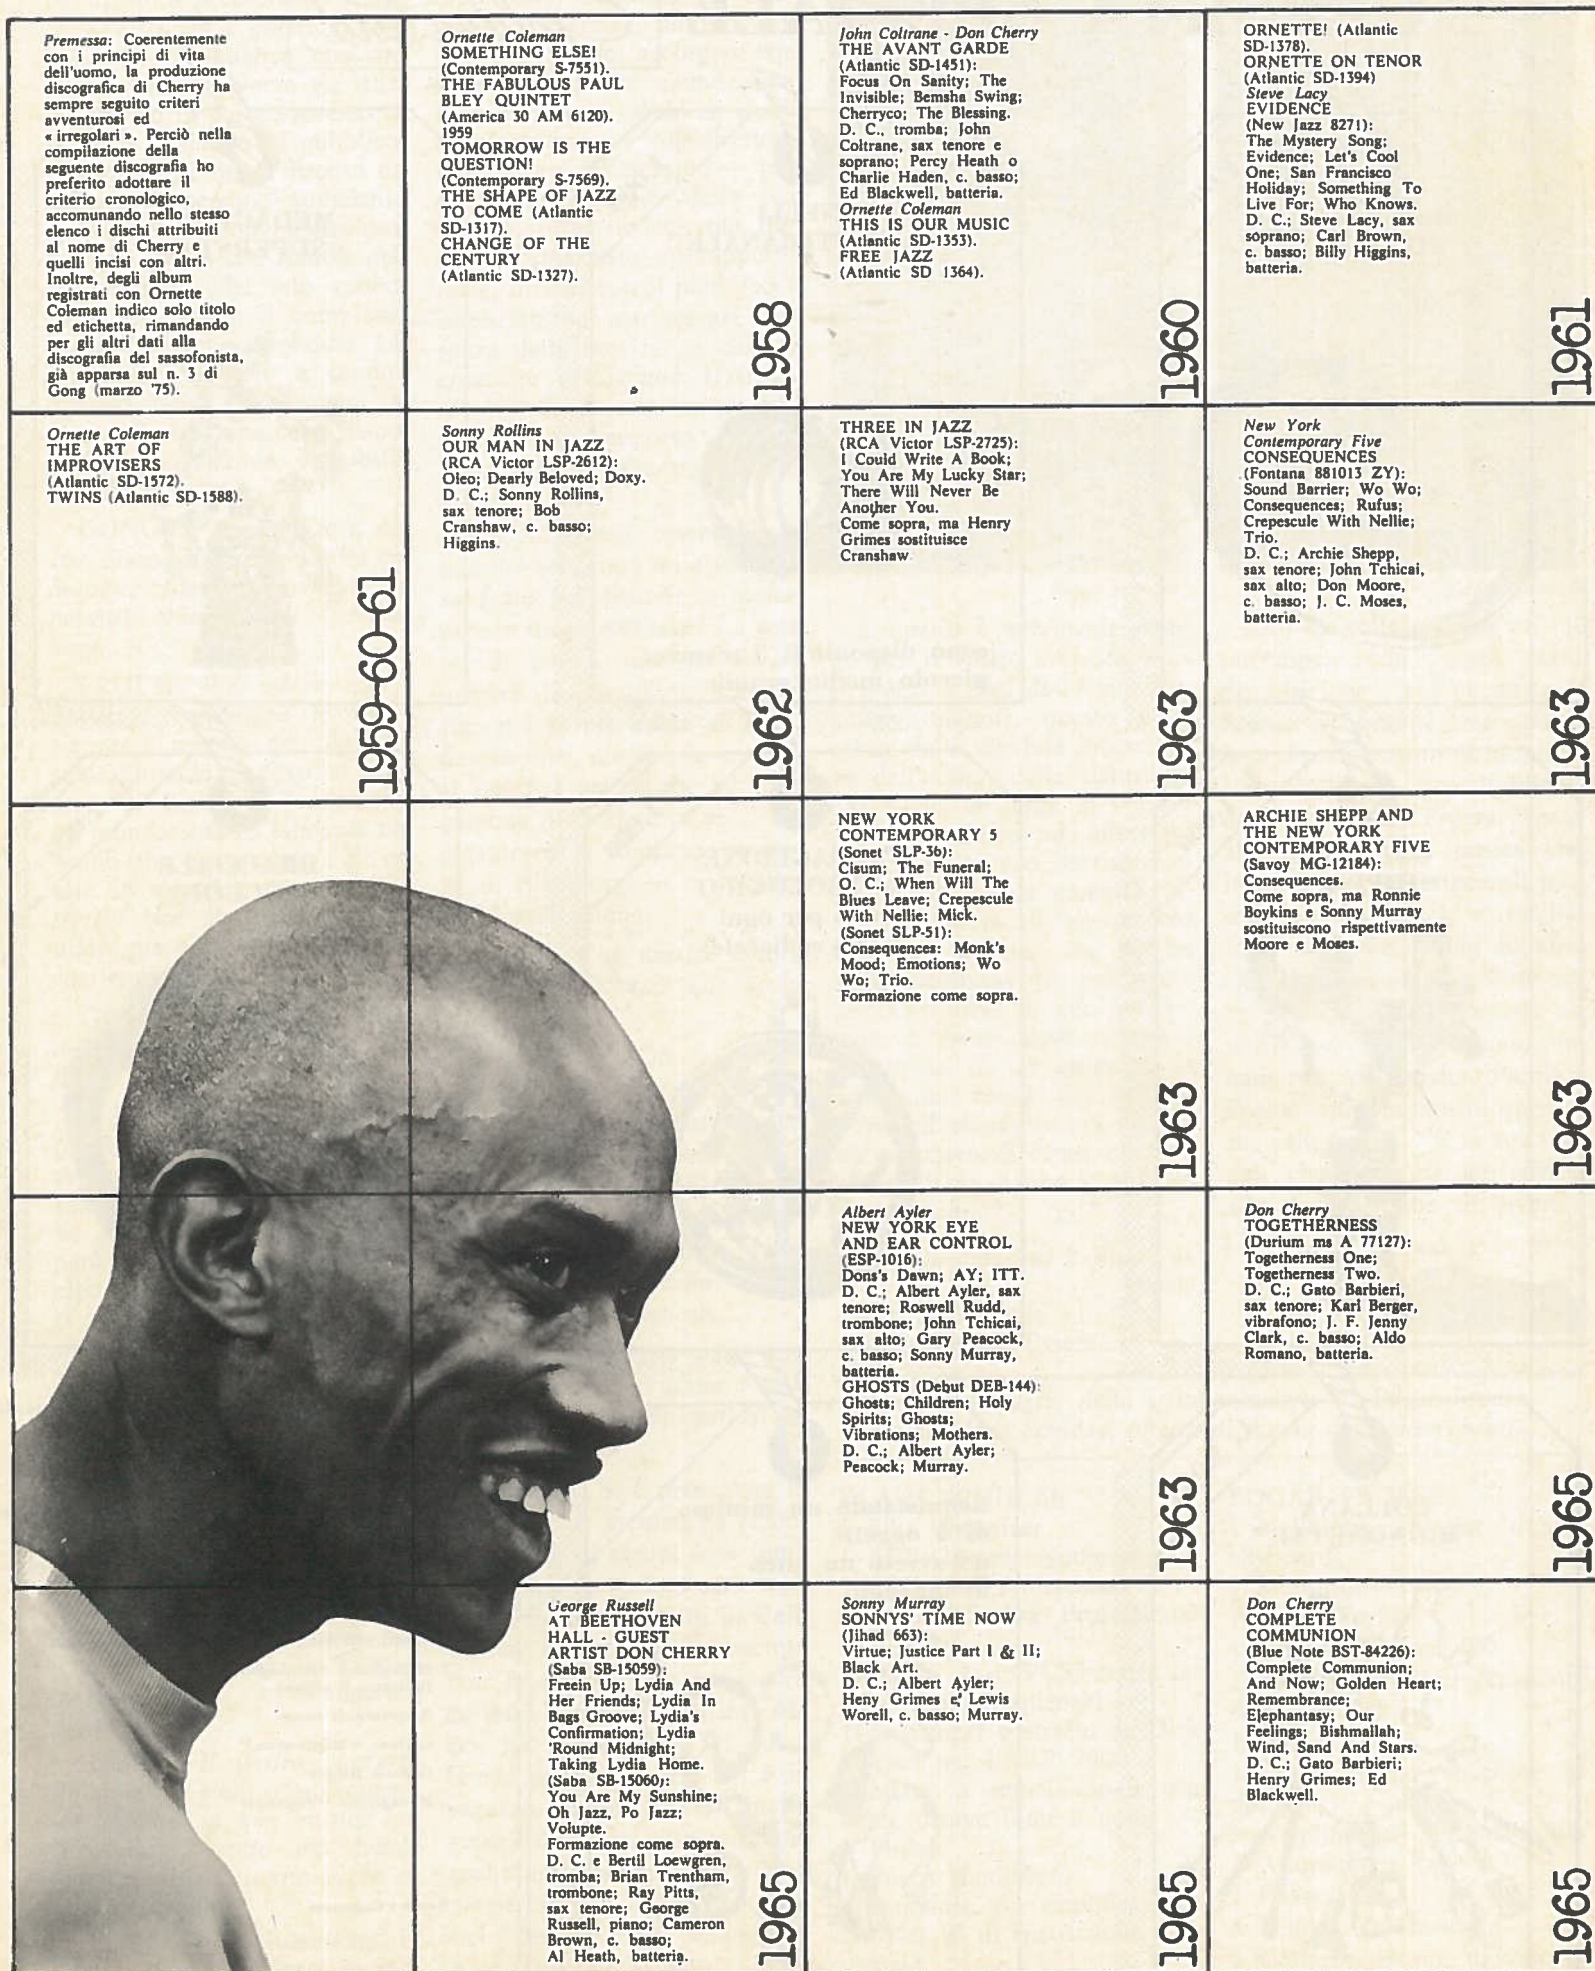 Premessa: Coerentemente
con i principi di vita
dell'uomo, la produzione
discografica di Cherry ha
sempre seguito criteri
avventurosi ed
« irregolari ». Perciò nella
compilazione della
seguente discografia ho
preferito adottare il
criterio cronologico,
accomunando nello stesso
elenco i dischi attribuiti
al nome di Cherry e
quelli incisi con altri.
Inoltre, degli album
registrati con Ornette
Coleman indico solo titolo
ed etichetta, rimandando
per gli altri dati alla
discografia del sassofonista,
già apparsa sul n. 3 di
Gong (marzo '75).
Ornette Coleman
SOMETHING ELSE!
(Contemporary S-7551).
THE FABULOUS PAUL
BLEY QUINTET
(America 30 AM 6120).
1959
TOMORROW IS THE
QUESTION!
(Contemporary S-7569).
THE SHAPE OF JAZZ
TO COME (Atlantic
SD-1317).
CHANGE OF THE
CENTURY
(Atlantic SD-1327).
1958
John Coltrane - Don Cherry
THE AVANT GARDE
(Atlantic SD-1451):
Focus On Sanity; The
Invisible; Bemsha Swing;
Cherryco; The Blessing.
D. C., tromba; John
Coltrane, sax tenore e
soprano; Percy Heath o
Charlie Haden, c. basso;
Ed Blackwell, batteria.
Ornette Coleman
THIS IS OUR MUSIC
(Atlantic SD-1353).
FREE JAZZ
(Atlantic SD 1364).
1960
ORNETTE! (Atlantic
SD-1378).
ORNETTE ON TENOR
(Atlantic SD-1394)
Steve Lacy
EVIDENCE
(New Jazz 8271):
The Mystery Song;
Evidence; Let's Cool
One; San Francisco
Holiday; Something To
Live For; Who Knows.
D. C.; Steve Lacy, sax
soprano; Carl Brown,
c. basso; Billy Higgins,
batteria.
1961
Ornette Coleman
THE ART OF
IMPROVISERS
(Atlantic SD-1572).
TWINS (Atlantic SD-1588).
1959-60-61
Sonny Rollins
OUR MAN IN JAZZ
(RCA Victor LSP-2612):
Oleo; Dearly Beloved; Doxy.
D. C.; Sonny Rollins,
sax tenore; Bob
Cranshaw, c. basso;
Higgins.
1962
THREE IN JAZZ
(RCA Victor LSP-2725):
I Could Write A Book;
You Are My Lucky Star;
There Will Never Be
Another You.
Come sopra, ma Henry
Grimes sostituisce
Cranshaw
1963
New York
Contemporary Five
CONSEQUENCES
(Fontana 881013 ZY):
Sound Barrier; Wo Wo;
Consequences; Rufus;
Crepescule With Nellie;
Trio.
D. C.; Archie Shepp,
sax tenore; John Tchicai,
sax alto; Don Moore,
c. basso; J. C. Moses,
batteria.
1963
NEW YORK
CONTEMPORARY 5
(Sonet SLP-36):
Cisum; The Funeral;
O. C.; When Will The
Blues Leave; Crepescule
With Nellie; Mick.
(Sonet SLP-51):
Consequences: Monk's
Mood; Emotions; Wo
Wo; Trio.
Formazione come sopra.
1963
ARCHIE SHEPP AND
THE NEW YORK
CONTEMPORARY FIVE
(Savoy MG-12184):
Consequences.
Come sopra, ma Ronnie
Boykins e Sonny Murray
sostituiscono rispettivamente
Moore e Moses.
1963
Albert Ayler
NEW YORK EYE
AND EAR CONTROL
(ESP-1016):
Dons's Dawn; AY; ITT.
D. C.; Albert Ayler, sax
tenore; Roswell Rudd,
trombone; John Tchicai,
sax alto; Gary Peacock,
c. basso; Sonny Murray,
batteria.
GHOSTS (Debut DEB-144):
Ghosts; Children; Holy
Spirits; Ghosts;
Vibrations; Mothers.
D. C.; Albert Ayler;
Peacock; Murray.
1963
Don Cherry
TOGETHERNESS
(Durium ms A 77127):
Togetherness One;
Togetherness Two.
D. C.; Gato Barbieri,
sax tenore; Karl Berger,
vibrafono; J. F. Jenny
Clark, c. basso; Aldo
Romano, batteria.
1965
George Russell
AT BEETHOVEN
HALL - GUEST
ARTIST DON CHERRY
(Saba SB-15059):
Freein Up; Lydia And
Her Friends; Lydia In
Bags Groove; Lydia's
Confirmation; Lydia
'Round Midnight;
Taking Lydia Home.
(Saba SB-15060):
You Are My Sunshine;
Oh Jazz, Po Jazz;
Volupte.
Formazione come sopra.
D. C. e Bertil Loewgren,
tromba; Brian Trentham,
trombone; Ray Pitts,
sax tenore; George
Russell, piano; Cameron
Brown, c. basso;
Al Heath, batteria.
1965
Sonny Murray
SONNYS' TIME NOW
(Jihad 663):
Virtue; Justice Part I & II;
Black Art.
D. C.; Albert Ayler;
Heny Grimes e Lewis
Worell, c. basso; Murray.
1965
Don Cherry
COMPLETE
COMMUNION
(Blue Note BST-84226):
Complete Communion;
And Now; Golden Heart;
Remembrance;
Elephantasy; Our
Feelings; Bishmallah;
Wind, Sand And Stars.
D. C.; Gato Barbieri;
Henry Grimes; Ed
Blackwell.
1965